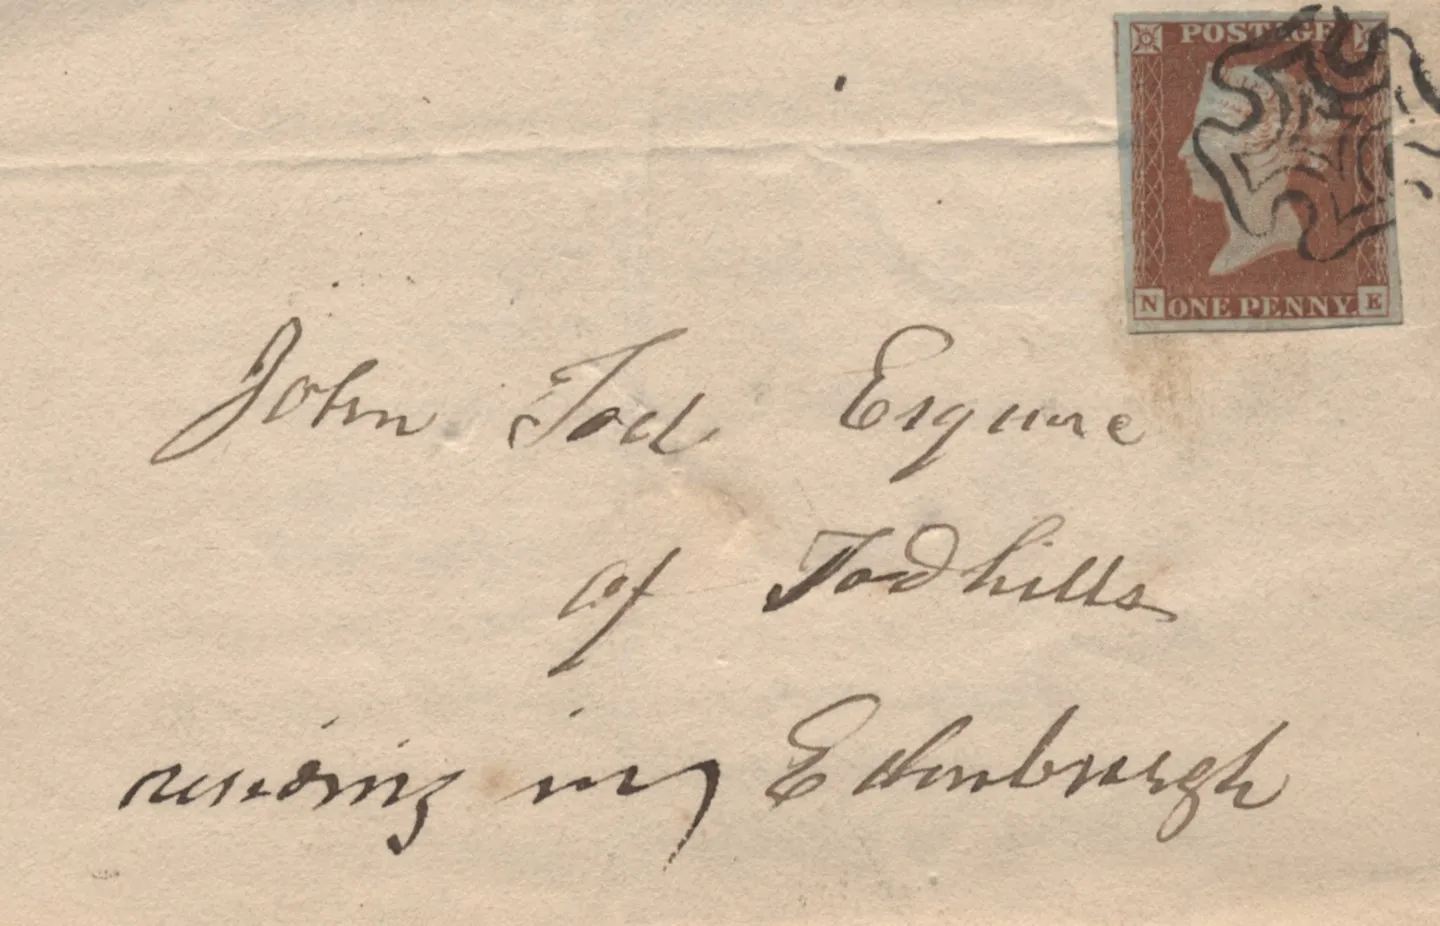 POSTAGE
N ONE PENNY. E
John Tod Esquire
of Todhills
residing in Edinburgh